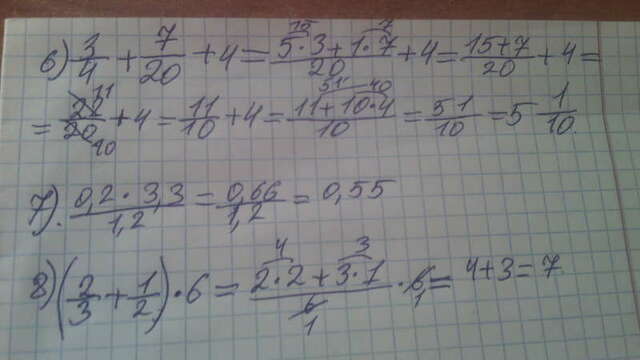 6) 3/4 + 7/20 + 4 = (5·3 + 1·7)/20 + 4 = (15+7)/20 + 4 =
= 22/20 + 4 = 11/10 + 4 = (11 + 10·4)/10 = 51/10 = 5 1/10
7). (0,2 · 3,3)/1,2 = 0,66/1,2 = 0,55
8) (2/3 + 1/2) · 6 = (2·2 + 3·1)/6 · 6 = 4+3 = 7